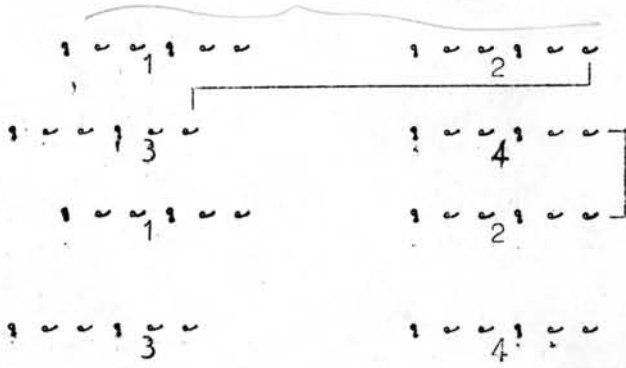 ุ ั ั ุ ั ั ุ ั ั ุ ั ั
1 2
ุ ั ั ุ ั ั ุ ั ั ุ ั ั
3 4
ุ ั ั ุ ั ั ุ ั ั ุ ั ั
1 2
ุ ั ั ุ ั ั ุ ั ั ุ ั ั
3 4